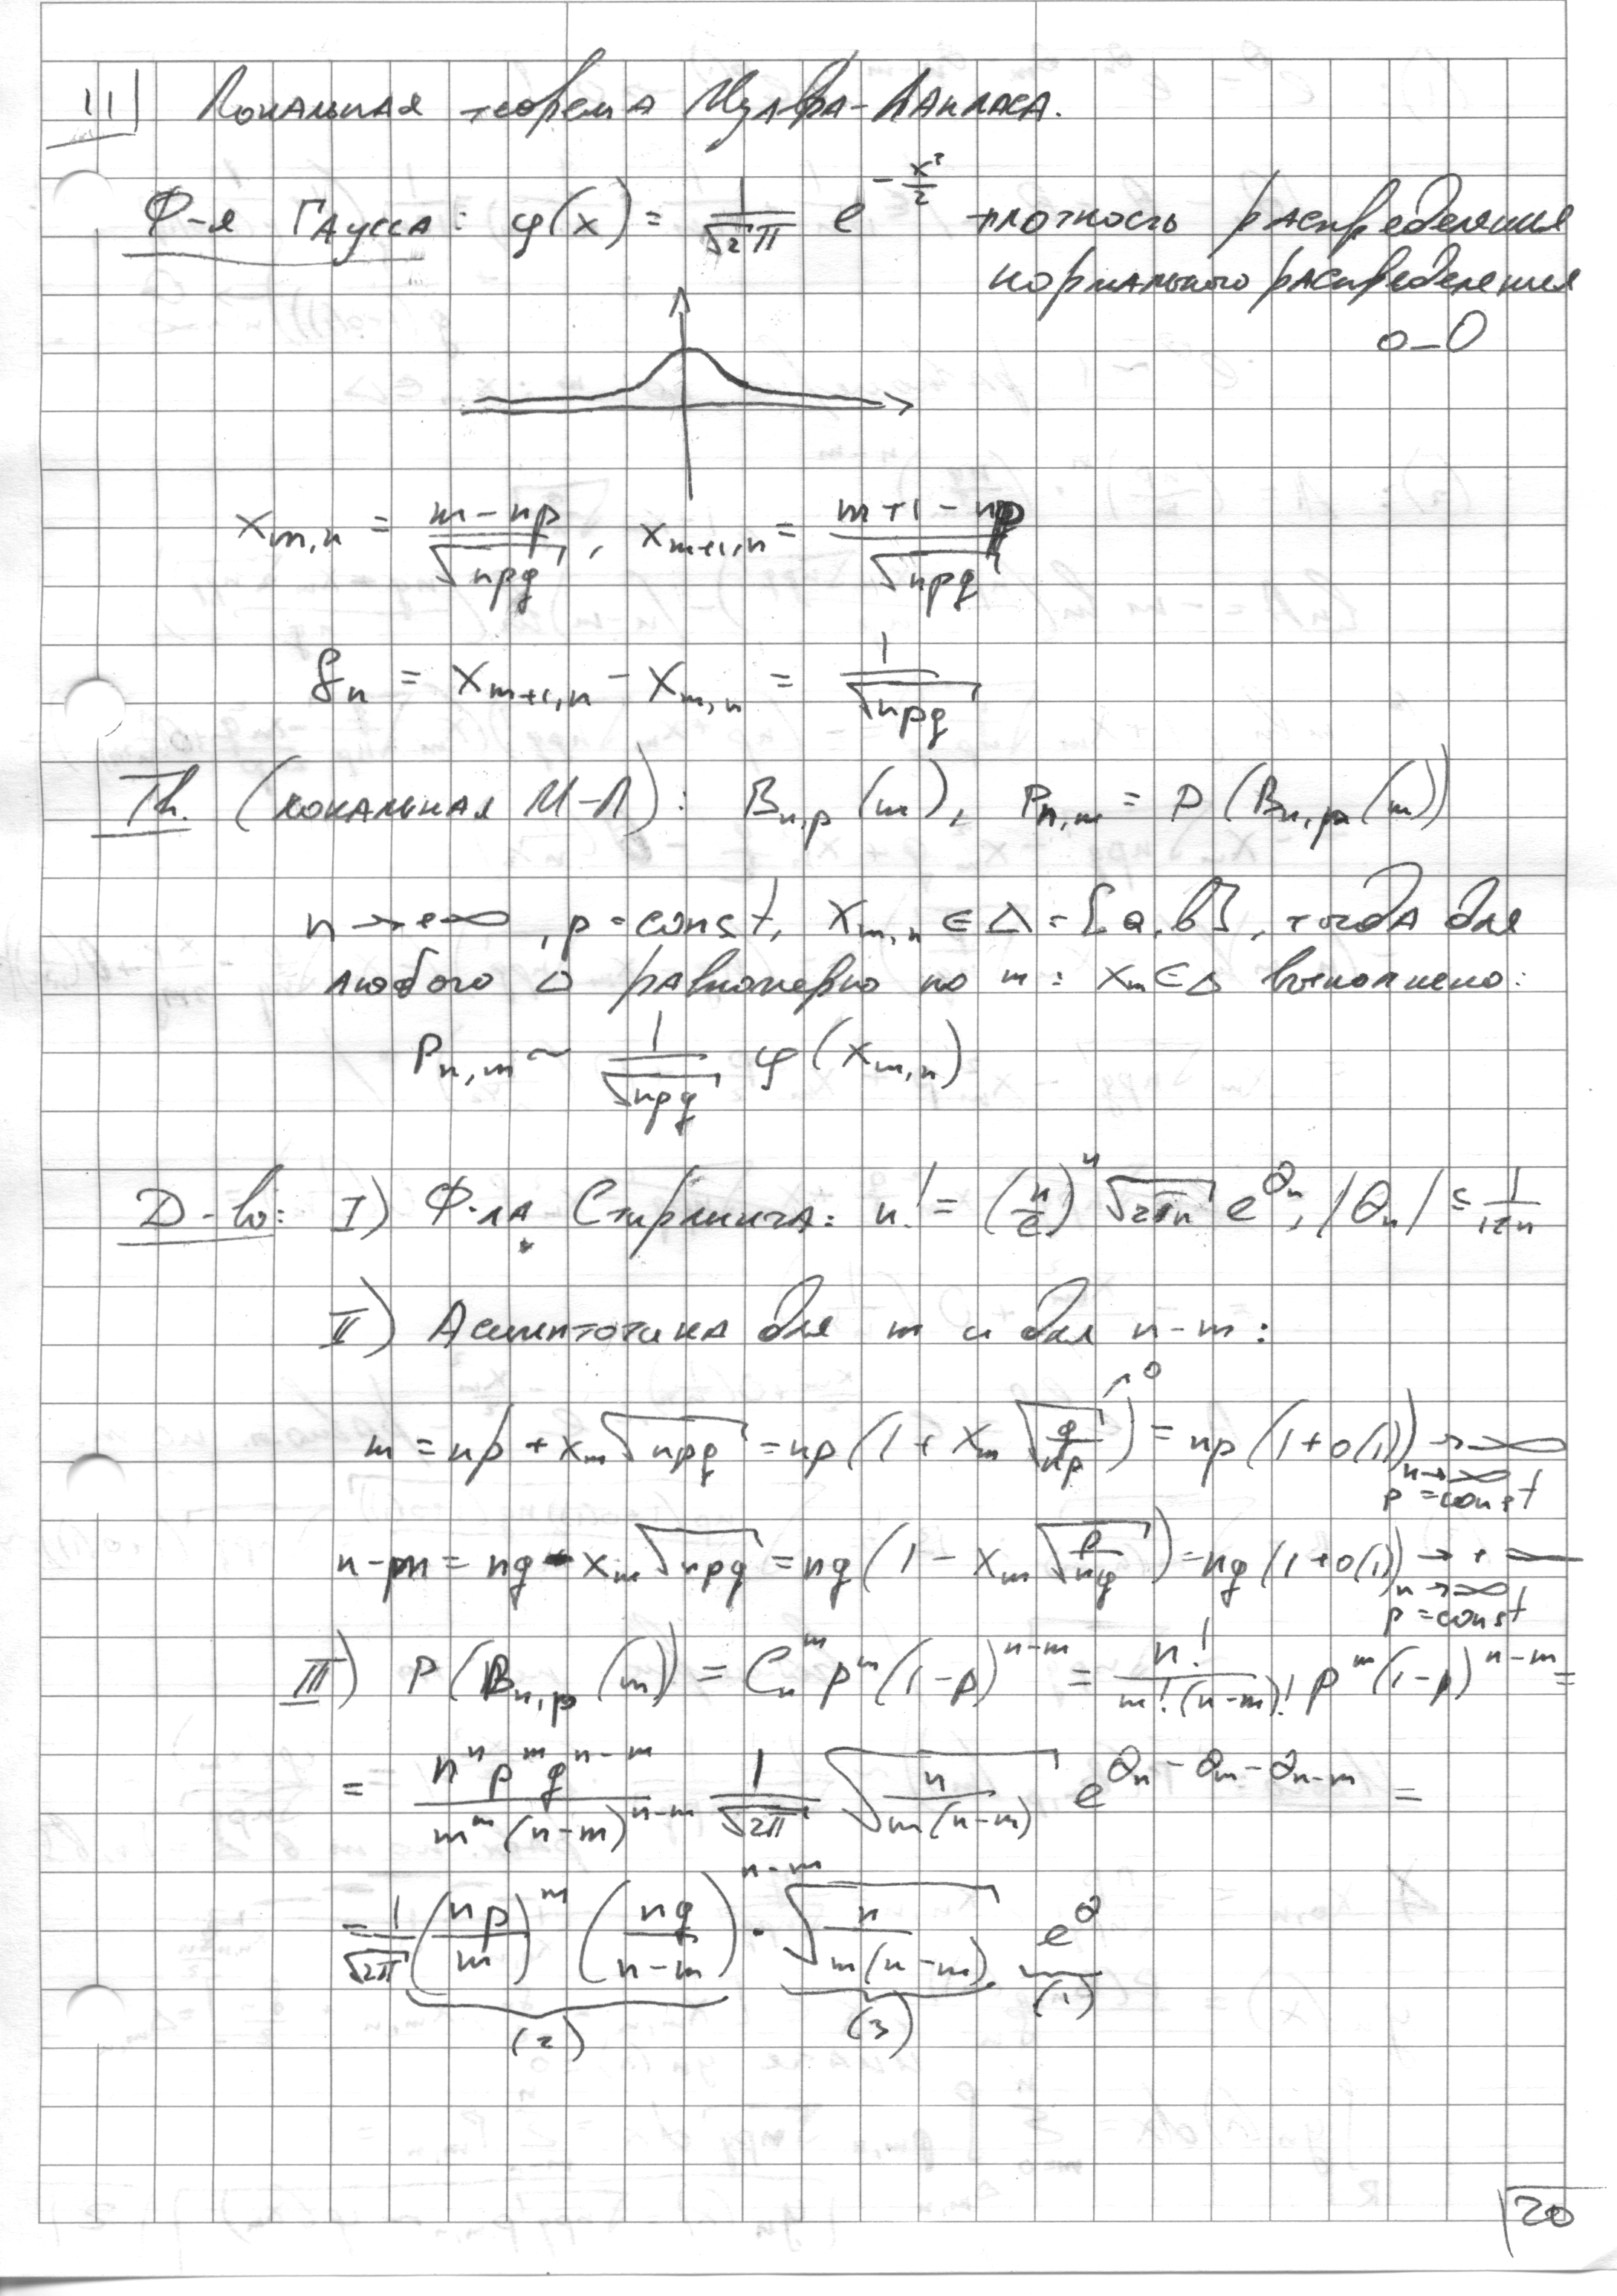 III) Локальная теорема Муавра-Лапласа.
Ф-я Гаусса: φ(x) = 1/√(2π) e^(-x²/2) плотность распределения
нормального распределения
o_O
x_{m,n} = (m - np)/√(npq), x_{m+1,n} = (m+1 - np)/√(npq)
δ_n = x_{m+1,n} - x_{m,n} = 1/√(npq)
Th. (локальная М-Л): B_{n,p}(m), P_{n,m} = P(B_{n,p}(m))
n → +∞, p = const, x_{m,n} ∈ Δ = [a, b], тогда для
любого Δ равномерно по m: x_m ∈ Δ выполнено:
P_{n,m} ~ 1/√(npq) φ(x_{m,n})
Д-во: I) Ф-ла Стирлинга: n! = (n/e)^n √(2πn) e^{θ_n}, |θ_n| ≤ 1/(12n)
II) Асимптотика для m и для n-m:
m = np + x_m √(npq) = np(1 + x_m √(q/(np)) ↗0) = np(1 + o(1)) → ∞ n→∞ p=const
n-m = nq - x_m √(npq) = nq(1 - x_m √(p/(nq))) = nq(1 + o(1)) → +∞ n→∞ p=const
III) P(B_{n,p}(m)) = C_n^m p^m (1-p)^{n-m} = n!/(m!(n-m)!) p^m (1-p)^{n-m} =
= (n^n p^m q^{n-m})/(m^m (n-m)^{n-m}) 1/√(2π) √(n/(m(n-m))) e^{θ_n - θ_m - θ_{n-m}} =
= 1/√(2π) (np/m)^m (nq/(n-m))^{n-m} · √(n/(m(n-m))) · e^θ
(2) (3) (1)
20